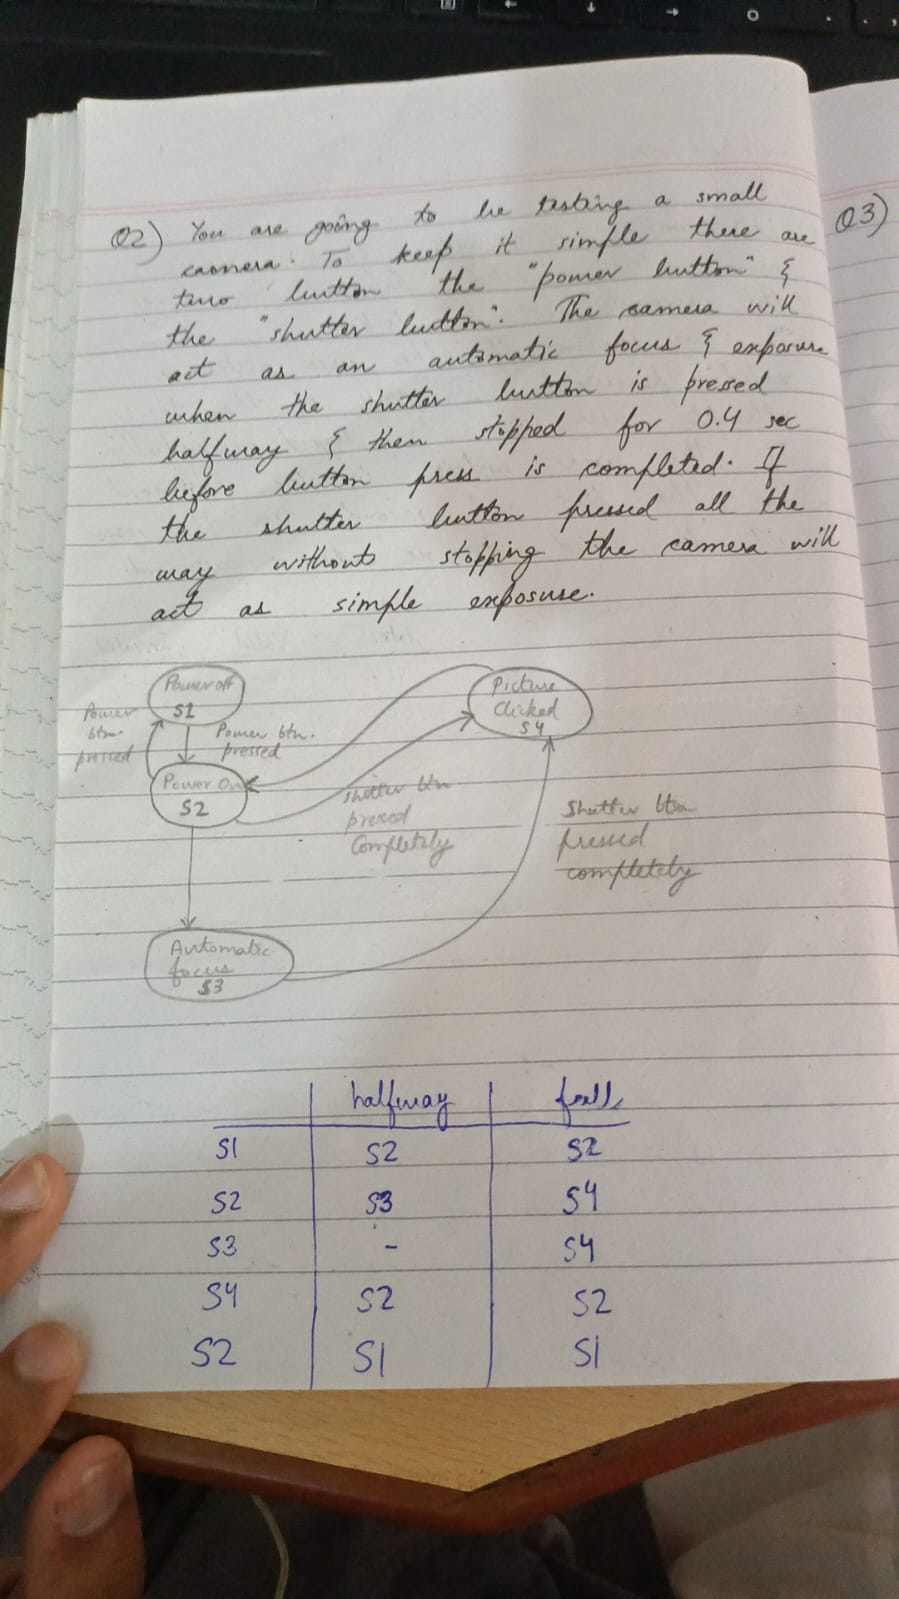 Q2) You are going to be testing a small
camera. To keep it simple there are
two button the "power button" &
the "shutter button". The camera will
act as an automatic focus & exposure
when the shutter button is pressed
halfway & then stopped for 0.4 sec
before button press is completed. If
the shutter button pressed all the
way without stopping the camera will
act as simple exposure.
Q3)
Power off
S1
Power
btn.
pressed
Power btn.
pressed
Power On
S2
Picture
Clicked
S4
shutter btn
pressed
Completely
Shutter btn
pressed
completely
Automatic
focus
S3
halfway full
S1 S2 S2
S2 S3 S4
S3 - S4
S4 S2 S2
S2 S1 S1